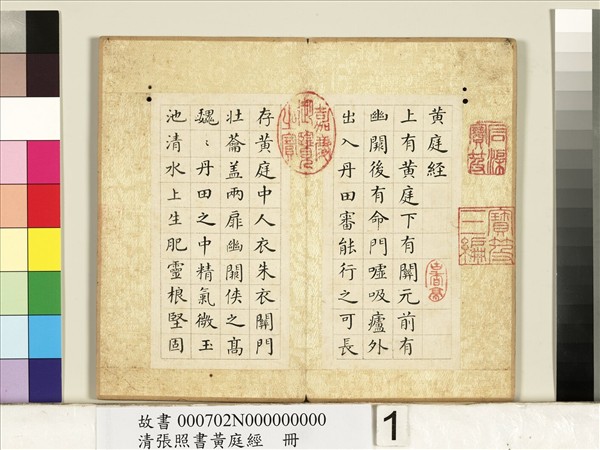 黃庭経
上有黃庭下有關元前有
幽闕後有命門噓吸廬外
出入丹田審能行之可長
存黃庭中人衣朱衣關門
壯蘥盖兩扉幽闕俠之高
巍〻丹田之中精氣微玉
池清水上生肥靈根堅固
石渠
寶笈
寶笈
三編
嘉慶
御覽
之寶
故書 000702N000000000
清張照書黃庭經 冊
1